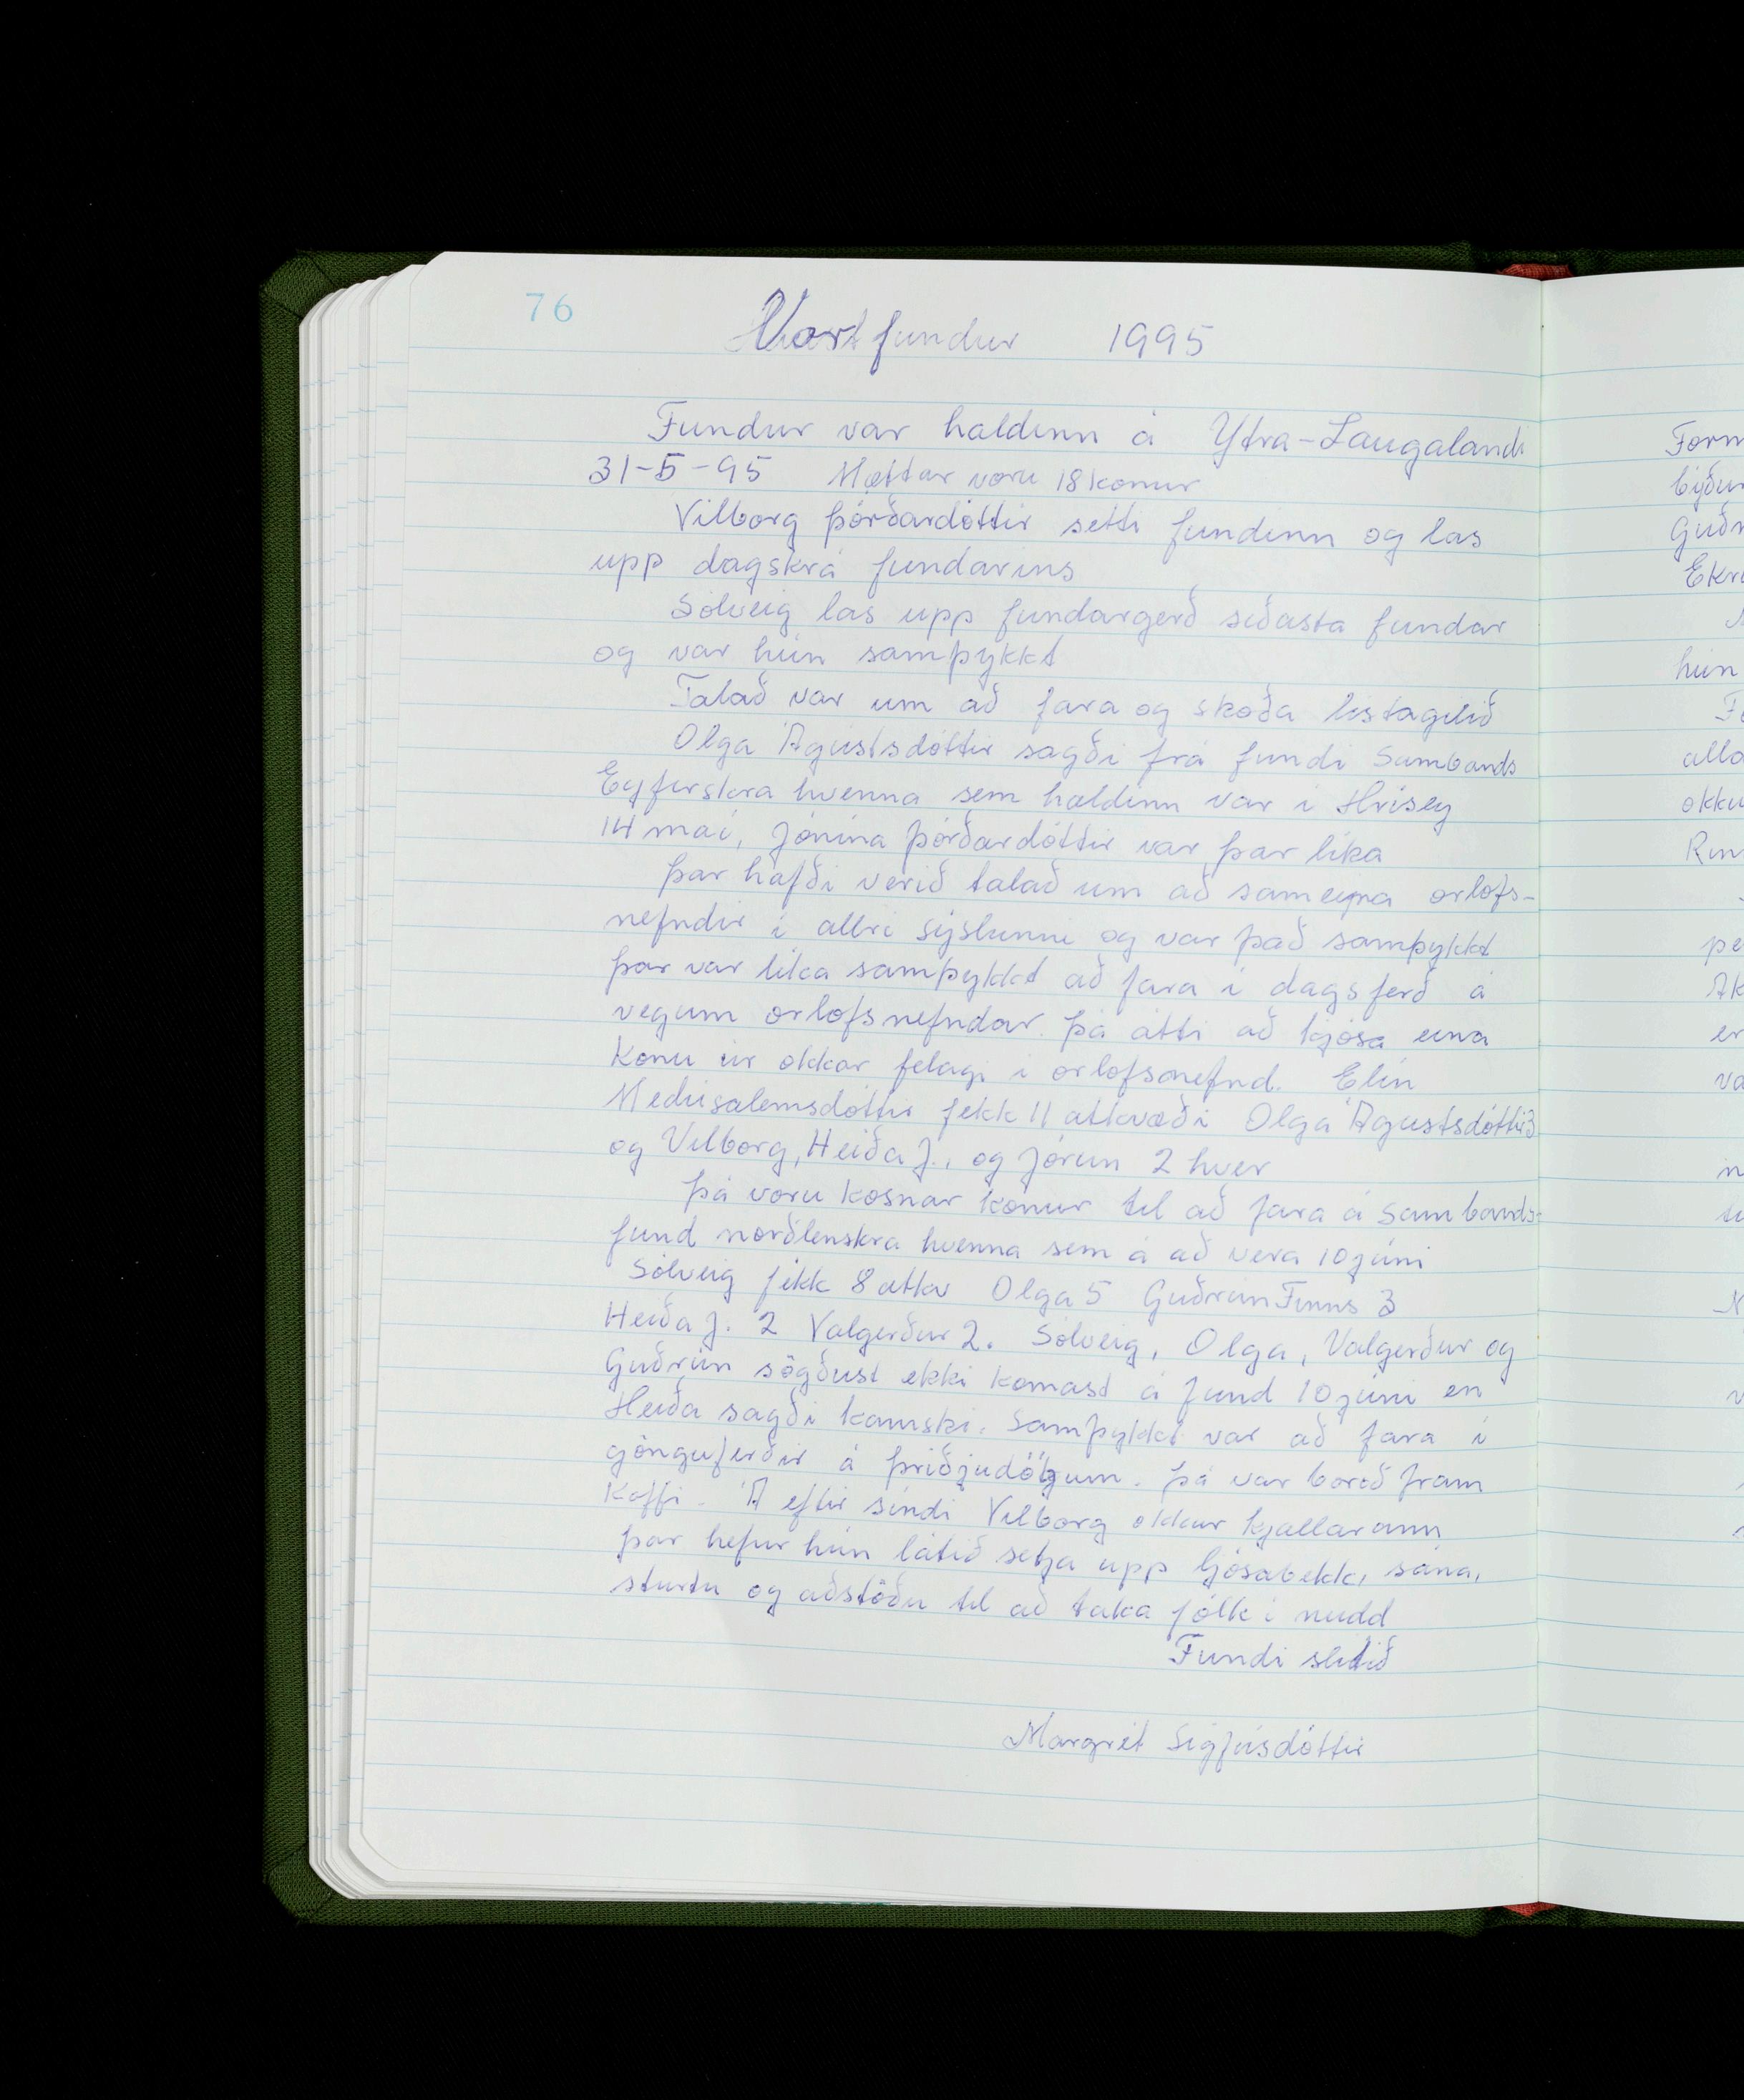 76
Vorfundur 1995
Fundur var haldinn á Ytra-Laugalandi
31-5-95 Mættar voru 18 konur
Vilborg Þórðardóttir setti fundinn og las
upp dagskrá fundarins
Sólveig las upp fundargerð síðasta fundar
og var hún samþykkt
Talað var um að fara og skoða listagilið
Olga Ágústsdóttir sagði frá fundi Sambands
Eyfirskra kvenna sem haldinn var í Hrísey
14 maí, Jónína Þórðardóttir var þar líka
Þar hafði verið talað um að sameina orlofs-
nefndir í allri sýslunni og var það samþykkt
Þar var líka samþykkt að fara í dagsferð á
vegum orlofsnefndar. Þá átti að kjósa eina
konu úr okkar félagi í orlofsnefnd. Elín
Medúsalemsdóttir fékk 11 atkvæði Olga Ágústsdóttir 3
og Vilborg, Heiða J., og Jórun 2 hver
Þá voru kosnar konur til að fara á Sambands-
fund norðlenskra kvenna sem á að vera 10 júní
Sólveig fékk 8 atkv Olga 5 Guðrún Finns 3
Heiða J. 2 Valgerður 2. Sólveig, Olga, Valgerður og
Guðrún sögðust ekki komast á fund 10 júní en
Heiða sagði kannski. Samþykkt var að fara í
gönguferðir á þriðjudögum. Þá var borið fram
Kaffi. Á eftir síndi Vilborg okkur kjallarann
þar hefur hún látið setja upp ljósabekk, sána,
sturtu og aðstöðu til að taka fólk í nudd
Fundi slitið
Margrét Sigfúsdóttir
Form
hún
alla
okku
er